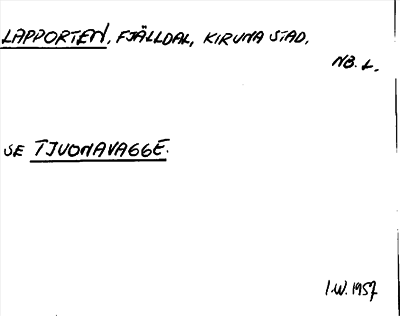 LAPPORTEN, FJÄLLDAL, KIRUNA STAD.
NB. L.
SE TJUONAVAGGE.
I.W. 1957